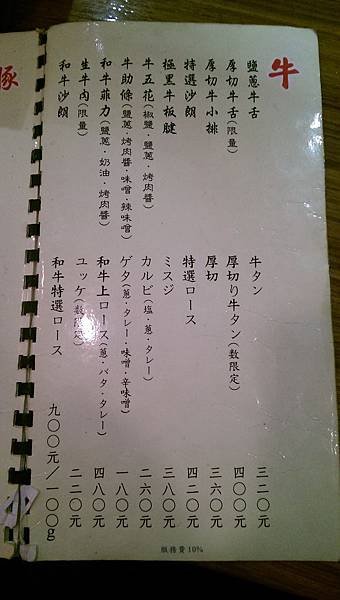 牛
鹽蔥牛舌 牛タン 三二〇元
厚切牛舌(限量) 厚切り牛タン(数限定) 四〇〇元
厚切牛小排 厚切 三六〇元
特選沙朗 特選ロース 四二〇元
極黑牛板腱 ミスジ 三八〇元
牛五花(椒鹽・鹽蔥・烤肉醬) カルビ(塩・蔥・タレー) 二六〇元
牛助條(鹽蔥・烤肉醬・味噌・辣味噌) ゲタ(蔥・タレー・味噌・辛味噌) 一八〇元
和牛菲力(鹽蔥・奶油・烤肉醬) 和牛上ロース(蔥・バタ・タレー) 四八〇元
生牛肉(限量) ユッケ(数限定) 二二〇元
和牛沙朗 和牛特選ロース 九〇〇元/一〇〇g
服務費10%
豚